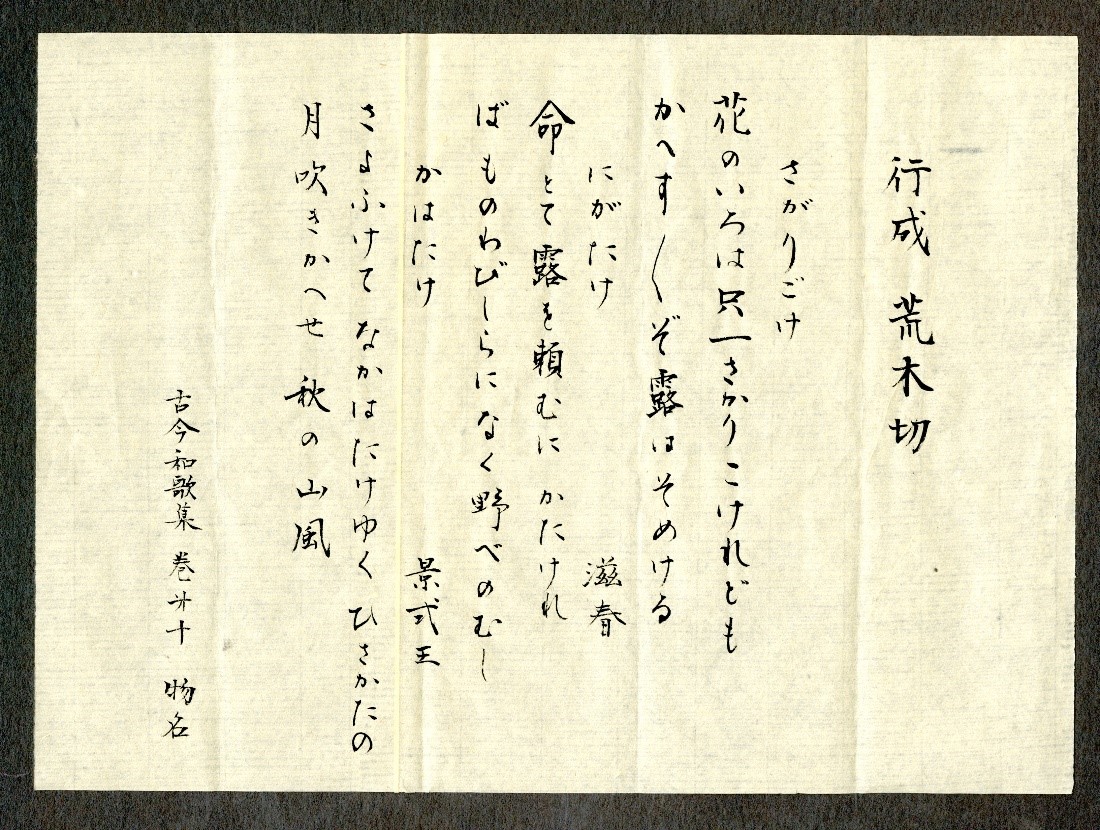 行成 荒木切
さがりごけ
花のいろは只一さかりこけれども
かへす〱ぞ露はそめける
にがたけ 滋春
命とて露を頼むに かたけれ
ば ものわびしらになく野べのむし
かはたけ 景式王
さよふけて なかはたけゆく ひさかたの
月吹きかへせ 秋の山風
古今和歌集 巻㐧十 物名